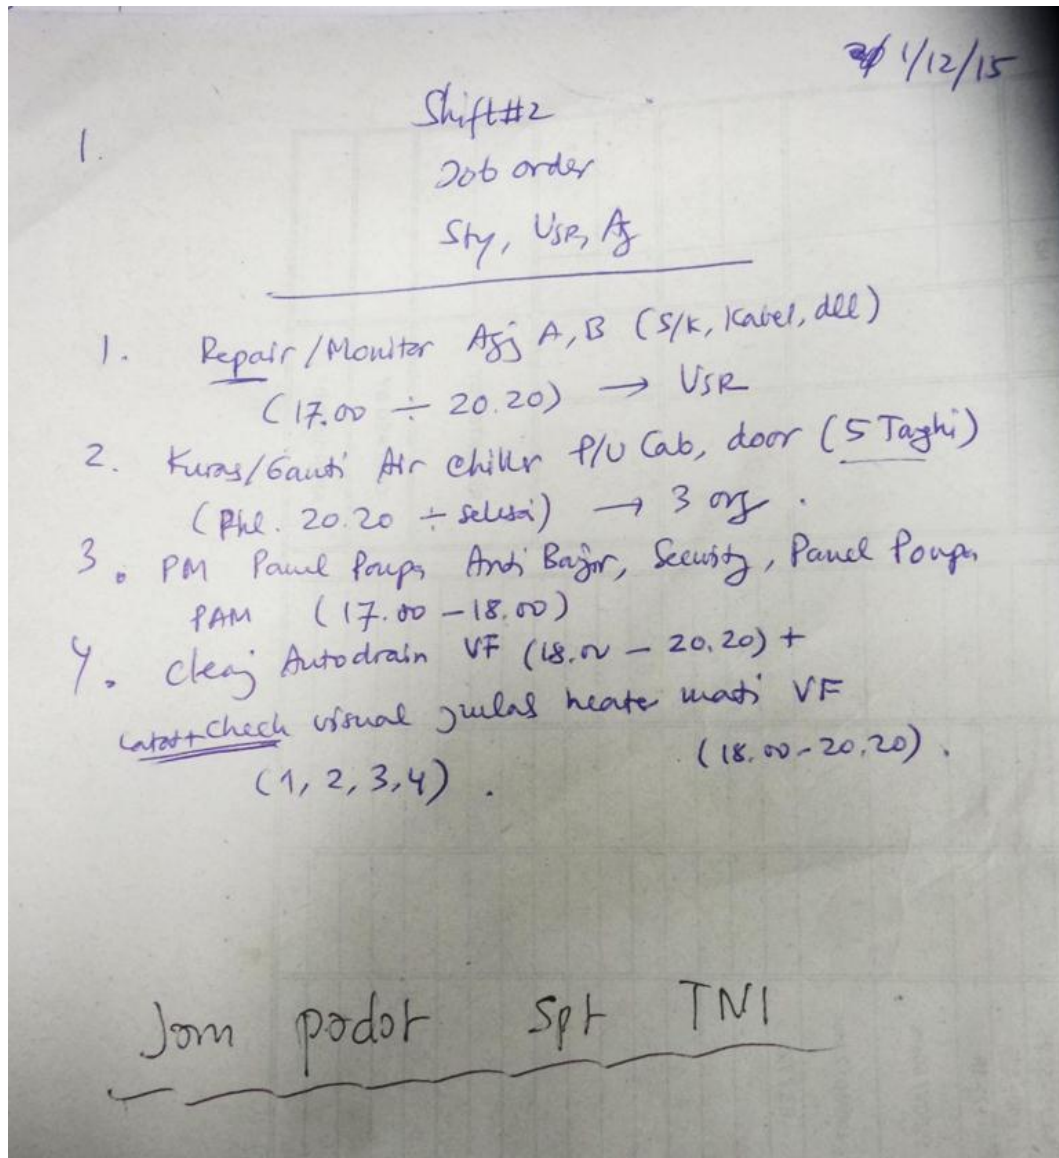 1/12/15
1.
Shift #2
Job order
Sty, USR, Aj
1. Repair/Monitor A, B (S/K, Kabel, dll)
(17.00 ÷ 20.20) → USR
2. Kuras/Ganti Air chiller P/U Cab, door (5 Tangki)
(Pkl. 20.20 ÷ selesai) → 3 org.
3. PM Panel Pompa Anti Banjir, Security, Panel Pompa
PAM (17.00 - 18.00)
4. Cleang Autodrain VF (18.00 - 20.20) +
Catat + Check visual jumlah heater mati VF
(1, 2, 3, 4). (18.00 - 20.20).
Jom padat spt TNI